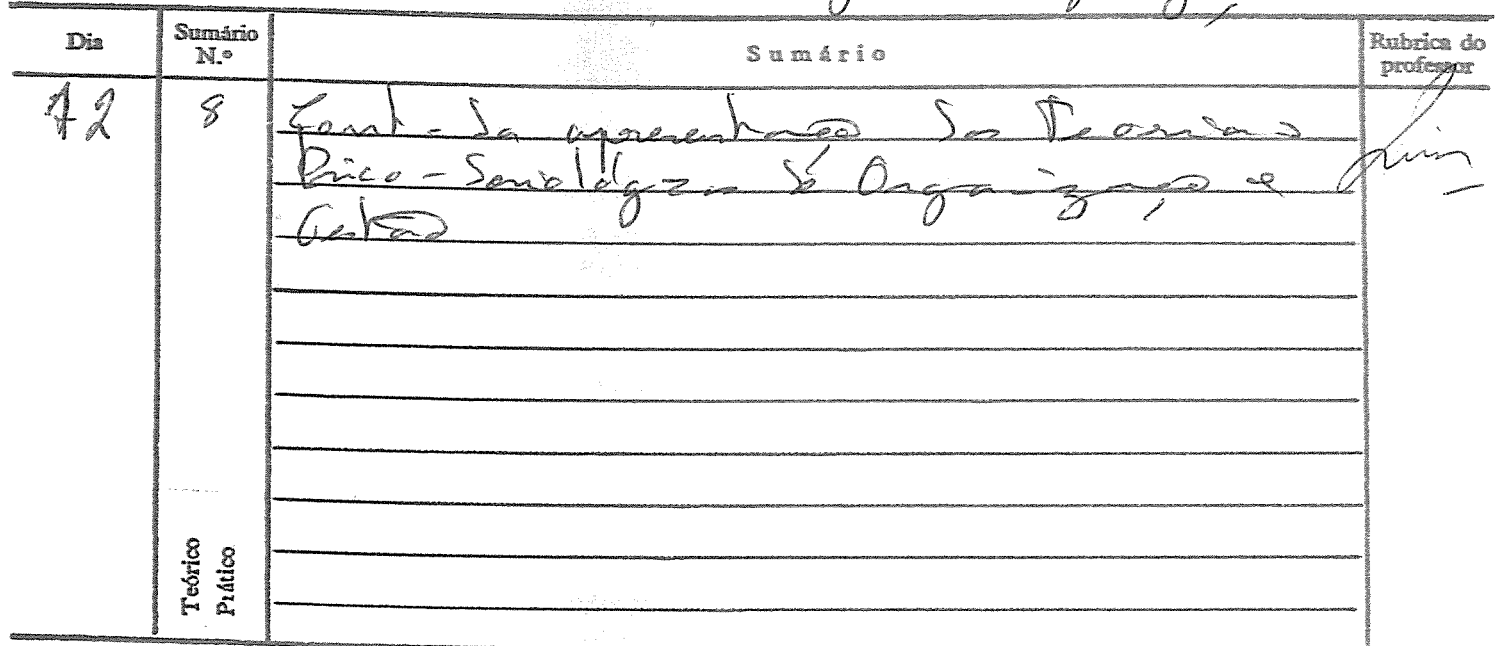 Dia Sumário N.º Sumário Rubrica do professor
12 8 Cont. da apresentação das Teorias
Psico-Sociológicas de Organização e
Gestão
Teórico
Prático